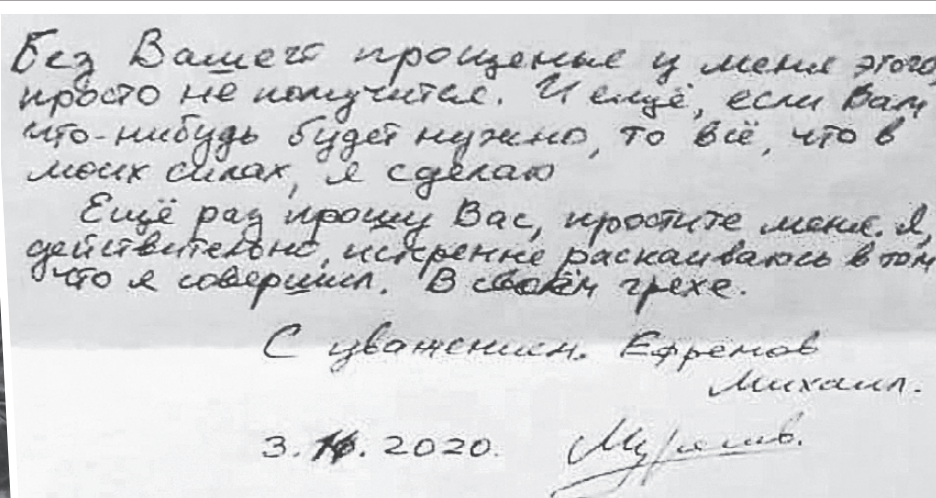 Без Вашего прощенья у меня этого
просто не получится. И ещё, если Вам
что-нибудь будет нужно, то всё, что в
моих силах, я сделаю
Ещё раз прошу Вас, простите меня. Я,
действительно, искренне раскаиваюсь в том
что я совершил. В своём грехе.
С уважением. Ефремов
Михаил.
3. . 2020.